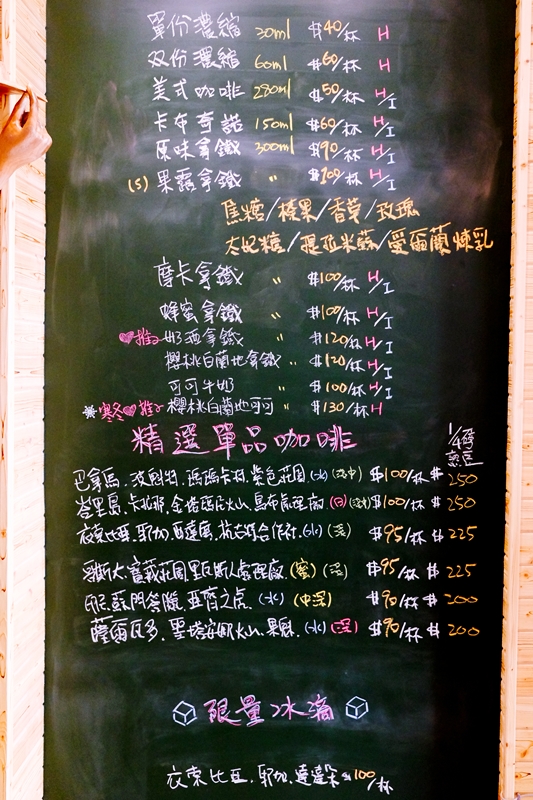 單份濃縮 30ml $40/杯 H
双份濃縮 60ml $60/杯 H
美式咖啡 280ml $50/杯 H/I
卡布奇諾 150ml $60/杯 H/I
原味拿鐵 300ml $90/杯 H/I
(S) 果露拿鐵 〃 $100/杯 H/I
焦糖/榛果/香草/玫瑰
太妃糖/提拉米蘇/愛爾蘭煉乳
摩卡拿鐵 〃 $100/杯 H/I
蜂蜜拿鐵 〃 $100/杯 H/I
♥推 奶酒拿鐵 〃 $120/杯 H/I
櫻桃白蘭地拿鐵 〃 $120/杯 H/I
可可牛奶 〃 $100/杯 H/I
寒冬♥推 櫻桃白蘭地可可 〃 $130/杯 H
精選單品咖啡 1/4磅
熟豆
巴拿馬.波魁特.瑪瑪卡塔.紫色莊園(水) $100/杯 $250
峇里島.金塔瑪尼火山.處理廠(日) $100/杯 $250
衣索比亞.耶加.合作社.(水)(淺) $95/杯 $225
哥斯大.莊園.處理廠.(蜜)(淺) $95/杯 $225
印尼.蘇門答臘.亞齊之虎.(水)(中深) $90/杯 $200
薩爾瓦多.聖塔安娜火山.(水)(深) $90/杯 $200
限量冰滴
衣索比亞.耶加. $100/杯